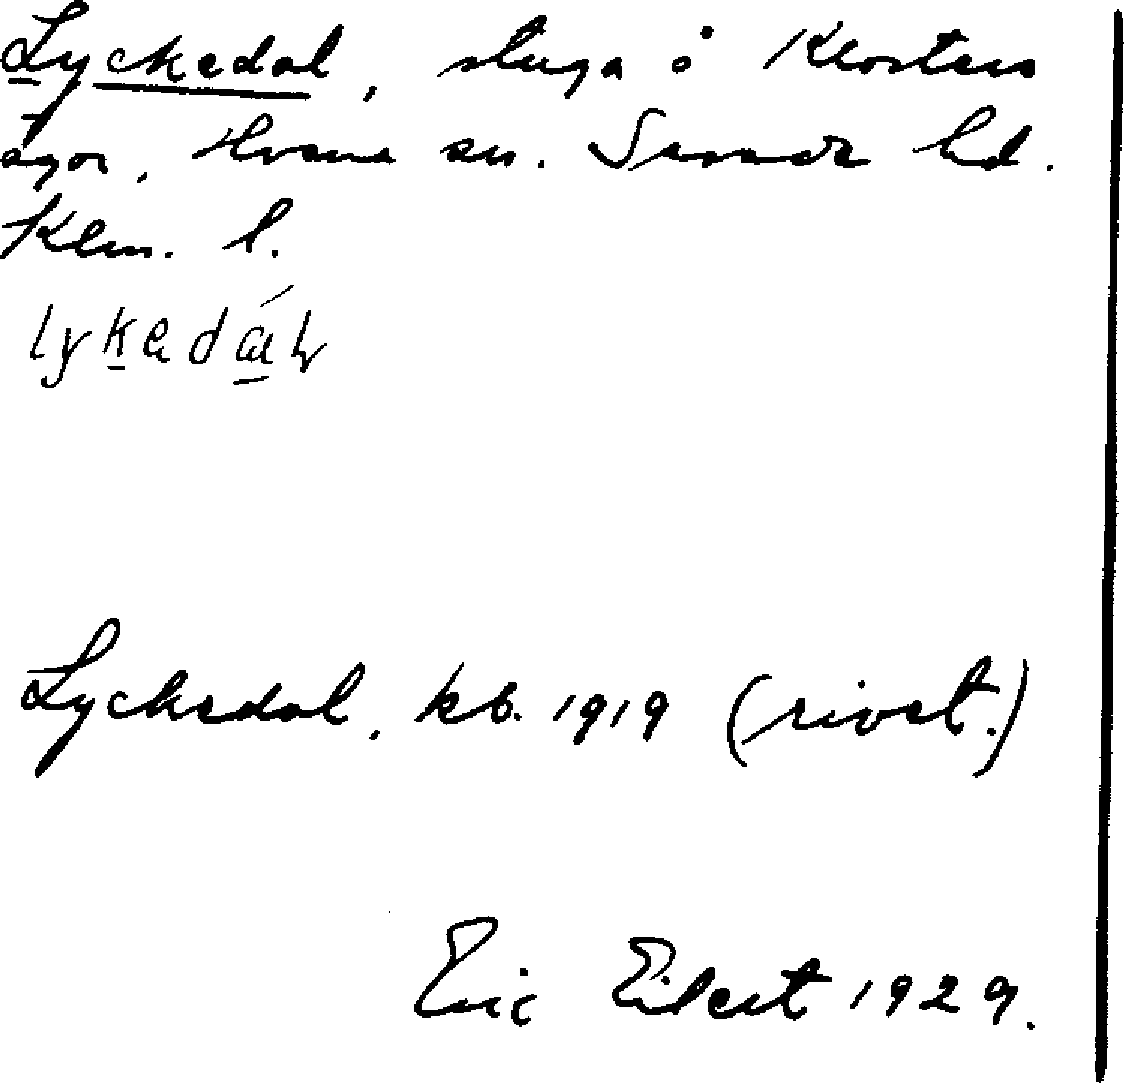 Lyckedal, stuga å Klosters
ägor, Hvena sn. Sevede hd.
Klm. l.
lykedál
Lyckedal, kb. 1919 (rivet.)
Eric Eilert 1929.